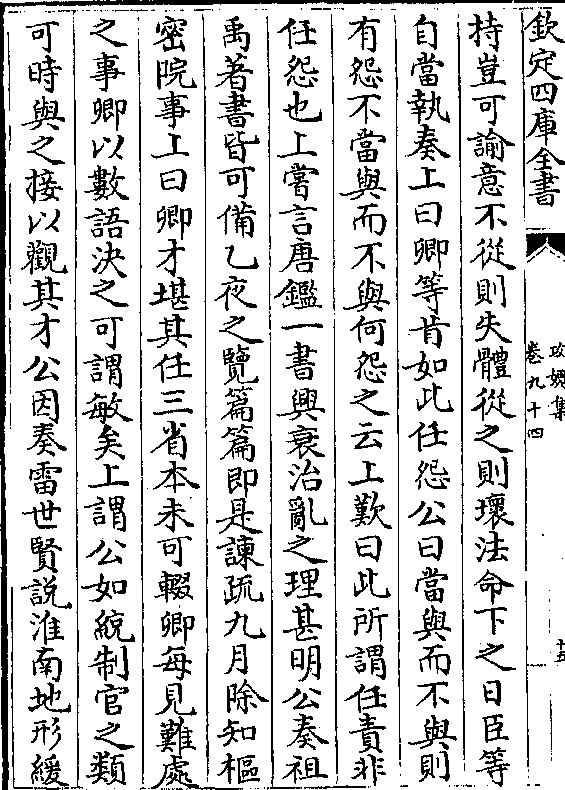 欽定四庫全書
攻媿集
卷九十四
十五
持豈可諭意不從則失體從之則壞法命下之日臣等
自當執奏上曰卿等肯如此任怨公曰當與而不與則
有怨不當與而不與何怨之云上歎曰此所謂任責非
任怨也上嘗言唐鑑一書興衰治亂之理甚明公奏祖
禹著書皆可備乙夜之覽篇篇即是諫疏九月除知樞
密院事上曰卿才堪其任三省本未可輟卿每見難處
之事卿以數語決之可謂敏矣上謂公如統制官之類
可時與之接以觀其才公因奏雷世賢說淮南地形緩